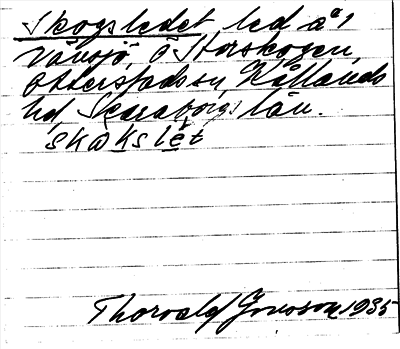 Skogsledet led å 1
Vänsjö, Ö Storskogen,
Otterstads sn, Kållands
hd, Skaraborgs län.
skɷkslet
Thorvald Jonsson 1935